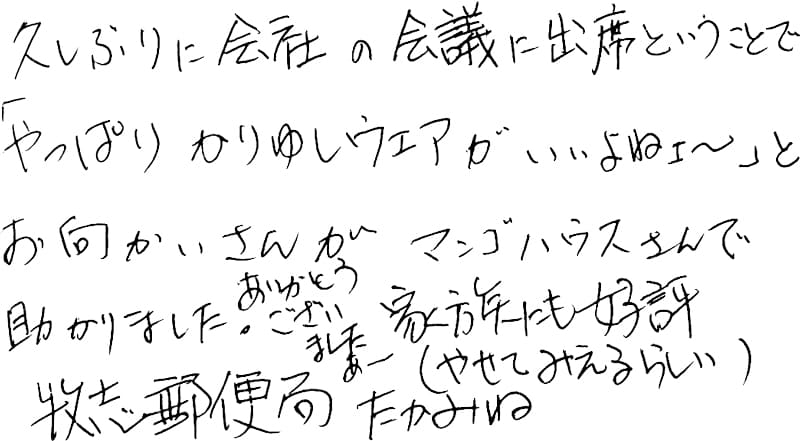 久しぶりに会社の会議に出席ということで
「やっぱりかりゆしウェアがいいよねェ〜」と
お向かいさんが マンゴハウスさんで
助かりました。ありがとう
ございい
ましたあ〜
家族にも好評
(やせてみえるらしい)
牧志郵便局 たかみね